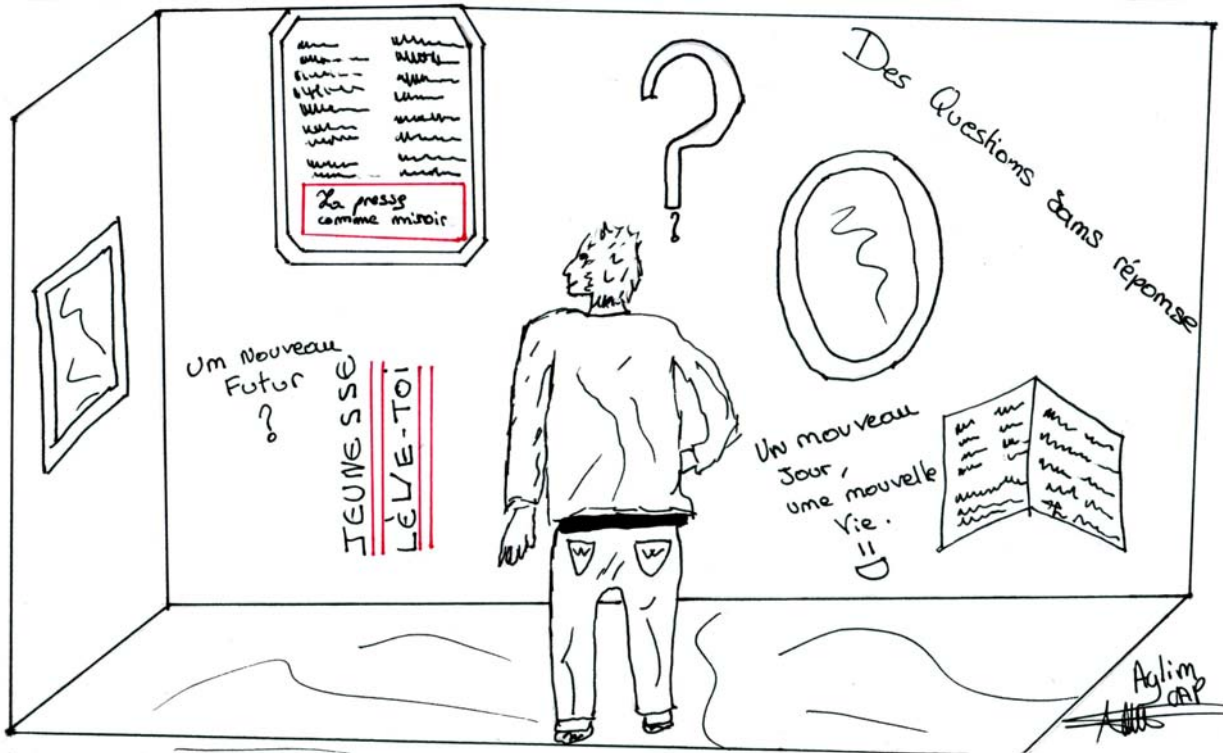 La presse
comme miroir
?
?
Des Questions sans réponse
Un Nouveau
Futur
?
JEUNESSE
LÈVE-TOI
Un nouveau
Jour,
une nouvelle
Vie.
W W
Aylim
CAP